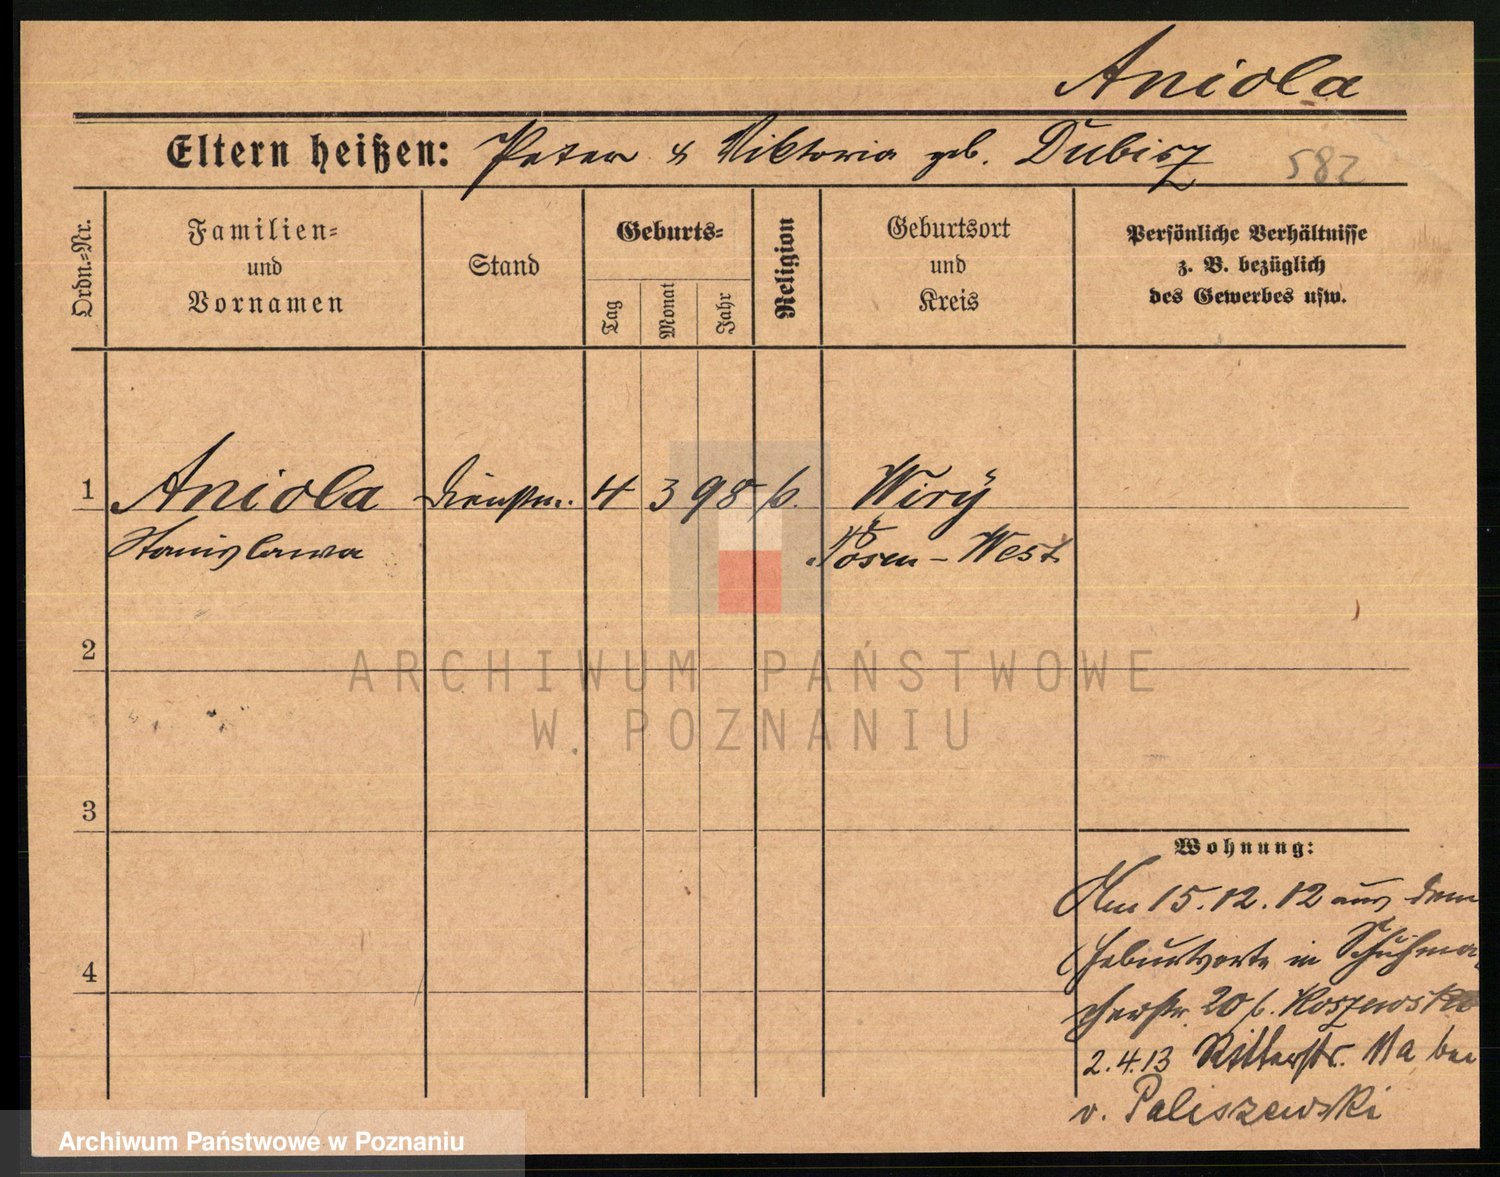 Aniola
Eltern heißen: Peter & Viktoria geb. Dubisz 582
Ordn.-Nr.
Familien-
und
Vornamen
Stand
Geburts-
Tag
Monat
Jahr
Religion
Geburtsort
und
Kreis
Persönliche Verhältnisse
z. B. bezüglich
des Gewerbes usw.
1 Aniola Dienstm. 4 3 98 k. Wiry
Stanislawa Posen-West
2
ARCHIWUM PAŃSTWOWE
W POZNANIU
3
Wohnung:
Am 15.12.12 aus dem
Geburtsorte in Schuhma-
4
cherstr. 20 b. Koszewski
2.4.13 Ritterstr. 11a bei
v. Paliszewski
Archiwum Państwowe w Poznaniu